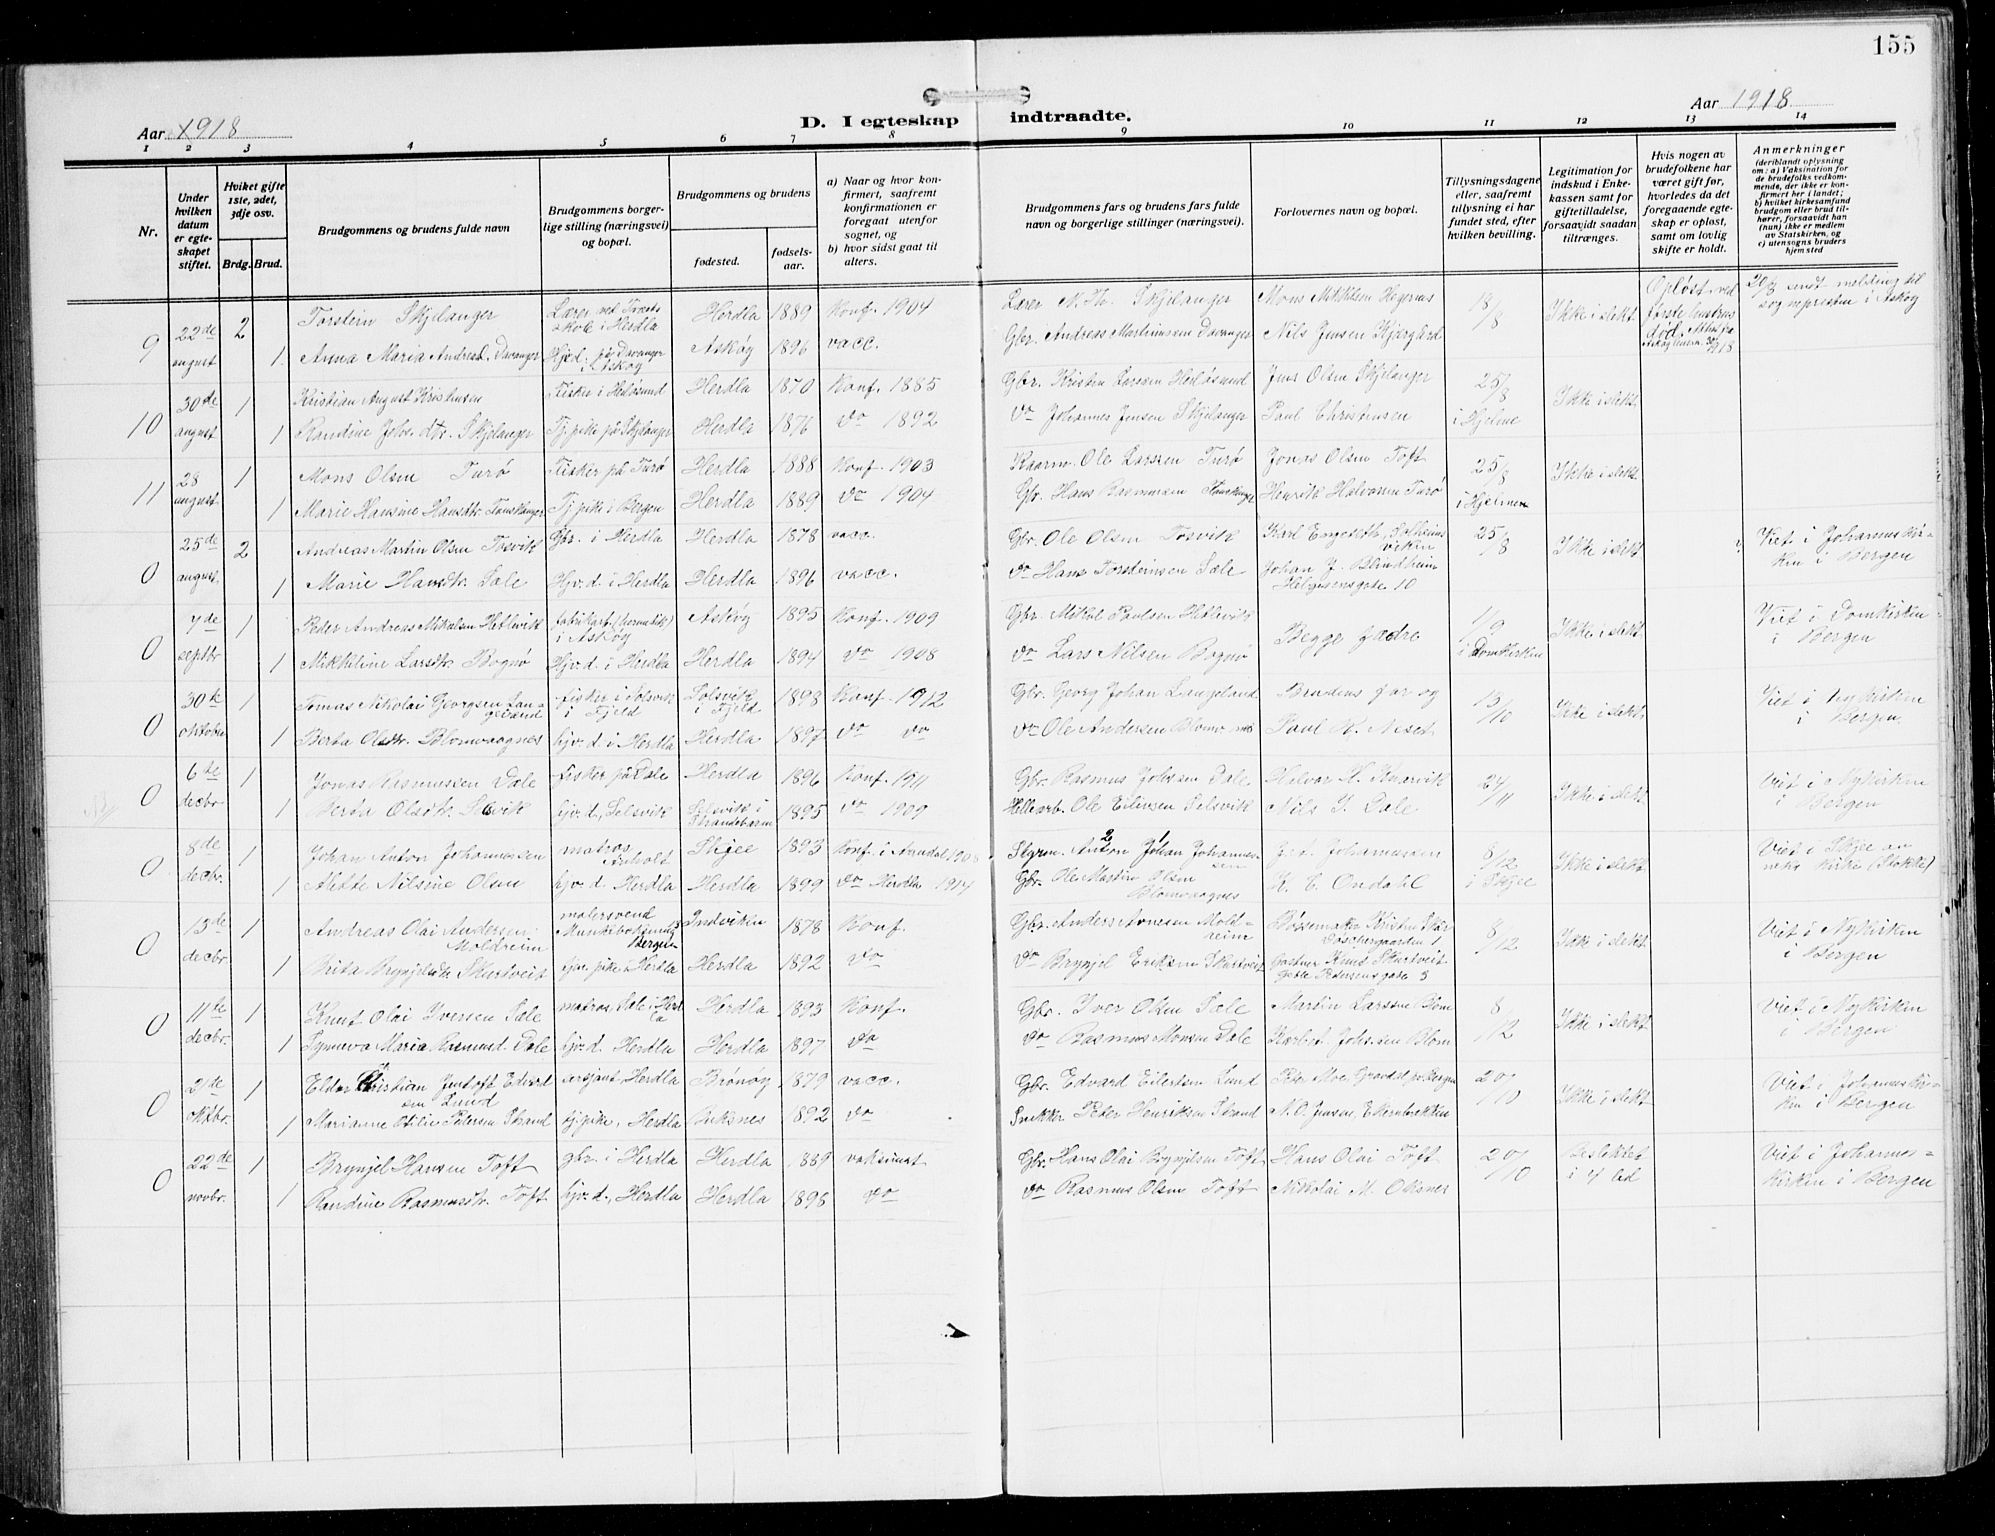 155
Aar 1918
D. I egteskap indtraadte.
Aar 1918
1 2 3 4 5 6 7 8 9 10 11 12 13 14
Nr.
Under hvilken datum er egteskapet stiftet.
Hviket gifte 1ste, 2det, 3dje osv.
Brdg. Brud.
Brudgommens og brudens fulde navn
Brudgommens borgerlige stilling (næringsvei) og bopæl.
Brudgommens og brudens
fødested.
fødselsaar.
a) Naar og hvor konfirmert, saafremt konfirmationen er foregaat utenfor sognet, og
b) hvor sidst gaat til alters.
Brudgommens fars og brudens fars fulde navn og borgerlige stillinger (næringsvei).
Forlovernes navn og bopæl.
Tillysningsdagene eller, saafremt tillysning ei har fundet sted, efter hvilken bevilling.
Legitimation for indskud i Enkekassen samt for giftetilladelse, forsaavidt saadan tiltrænges.
Hvis nogen av brudefolkene har været gift før, hvorledes da det foregaaende egteskap er opløst, samt om lovlig skifte er holdt.
Anmerkninger (deriblandt oplysning om: a) Vaksination for de brudefolks vedkommende, der ikke er konfirmert her i landet; b) hvilket kirkesamfund brudgom eller brud tilhører, forsaavidt han (hun) ikke er medlem av Statskirken, og c) utensogns bruders hjemsted
9 22de august 2 Torstein Skjelanger Lærer ved Tveits skole i Herdla Herdla 1889 Konf. 1904 Lærer N. Th. Skjelanger Mons Mikkelsen Hegernes 18/8 Ikke i slekt Opløst ved første hustrus død. 20/8 sendt melding til sognepresten i Askøy
1 Anna Maria Andreasd. Davanger Hjd. på Davanger i Askøy Askøy 1896 vacc. Gbr. Andreas Martinussen Davanger Nils Jensen Kjærgård
10 30de august 1 Kristian August Kristensen Fisker i Hellesund Herdla 1870 Konf. 1885 Gbr. Kristen Larssen Hellesund Jens Olsen Skjelanger 25/8 i Hjelme Ikke i slekt
1 Randine Johs. dtr. Skjelanger Tj. pike på Skjelanger Herdla 1876 do 1892 do Johannes Jensen Skjelanger Paul Christensen
11 28 august 1 Mons Olsen Turø Fisker på Turø Herdla 1888 Konf. 1903 Kaarm. Ole Larssen Turø Jonas Olsen Toft 25/8 i Hjelmen Ikke i slekt
1 Marie Hansine Hansdtr. Tanskanger Tj. pike i Bergen Herdla 1889 do 1904 Gbr. Hans Rasmussen Henrik Halvorsen Turø
0 25de august. 2 Andreas Martin Olsen Tosvik Gbr. i Herdla Herdla 1878 vacc. Gbr. Ole Olsen Tosvik Karl Engeseth, Solheimsviken 25/8 Ikke i slekt Viet i Johanneskirken i Bergen
1 Marie Hansdtr. Sæle Hjv. d. i Herdla Herdla 1896 vacc. do Hans Torsteinsen Sæle Johan J. Blindheim Helgesensgate 10
0 7de septbr 1 Peder Andreas Mikalsen Hetlevik fabrikarb. (hermetik) i Askøy Askøy 1895 Konf. 1909 Gbr. Mikal Paulsen Hetlevik Begge fædre 1/9 i Domkirken Ikke i slekt Viet i Domkirken i Bergen
1 Mikkeline Larsdtr. Bognø Hjv. d. i Herdla Herdla 1894 do 1908 do Lars Nilsen Bognø
0 30te oktober 1 Tomas Nikolai Georgsen Langeland Fisker i Solsvik i Fjeld Solsvik i Fjeld 1898 Konf. 1912 Gbr. Georg Johan Langeland Brudens far og 13/10 Ikke i slekt Viet i Nykirken i Bergen.
1 Berta Olsdtr. Blomvaagnes hjv. d. i Herdla Herdla 1897 do do do Ole Andersen Blomv.nes Paul K. Neset
0 6te decbr 1 Jonas Rasmussen Dale Fisker på Dale Herdla 1896 Konf. 1911 Gbr. Rasmus Johnsen Dale Halvar H. Knarvik 24/11 Ikke i slekt Viet i Nykirken i Bergen
1 Berta Olsdtr. Selsvik hjv. d., Selsvik Selsvik i Strandebarm 1895 do 1909 Hellearb. Ole Eilivsen Selsvik Nils J. Dale
0 8de decbr. 1 Johan Anton Johannessen matros Skjee 1893 Konf. i Arendal 1908 Styrm. Anton Johan Johannessen Johannessen 8/12 i Skjee Ikke i slekt Viet i Skjee anneks kirke (Stokke)
1 Alette Nilsine Olsen hjv. d. Herdla Herdla 1899 do Herdla 1914 Gbr. Ole Martin Olsen Blomvaagnes K. E. Ondahl
0 13de decbr. 1 Andreas Olai Andersen Moldreim malersvend Bergen Indviken 1878 Konf. Gbr. Anders Moldreim Bøssemaker Kristen 8/12 Ikke i slekt Viet i Nykirken i Bergen
1 Brita Brynjelsdtr Skurtveit tjen. pike i Herdla Herdla 1892 do do Brynjel Eriksen Skurtveit Gartner Knut Skurtveit Gabr. Petersensgate 3
0 11te decbr. 1 Knut Olai Iversen Sæle matros, Sæle i Herdla Herdla 1893 Konf. Gbr. Iver Olsen Sæle Martin Larssen Blom 8/12 Ikke i slekt Viet i Nykirken i Bergen
1 Synneva Maria Rasmusd. Dale hjv. d. Herdla Herdla 1897 do do Rasmus Monsen Dale Johs.sen Blom
0 21de oktbr. 1 Eldor Christian Jentoft Edvardsen Lund sersjant, Herdla Brønøy 1879 vacc. Gbr. Edvard Eilertsen Lund Peter Moe 20/10 Ikke i slekt Viet i Johanneskirken i Bergen
1 Marianne Otilie Petersen Strand tj. pike, Herdla Buksnes 1892 do Snekker Peter Henriksen Strand N. O. Jensen
0 22de novbr. 1 Brynjel Hansen Toft gbr. i Herdla Herdla 1889 vaksinert Gbr. Hans Olai Brynjelsen Toft Hans Olai Toft 20/10 Beslektet i 4 led Viet i Johanneskirken i Bergen
1 Randine Rasmusdtr. Toft hjv. d., Herdla Herdla 1898 do do Rasmus Olsen Toft Nikolai M. Oksnes